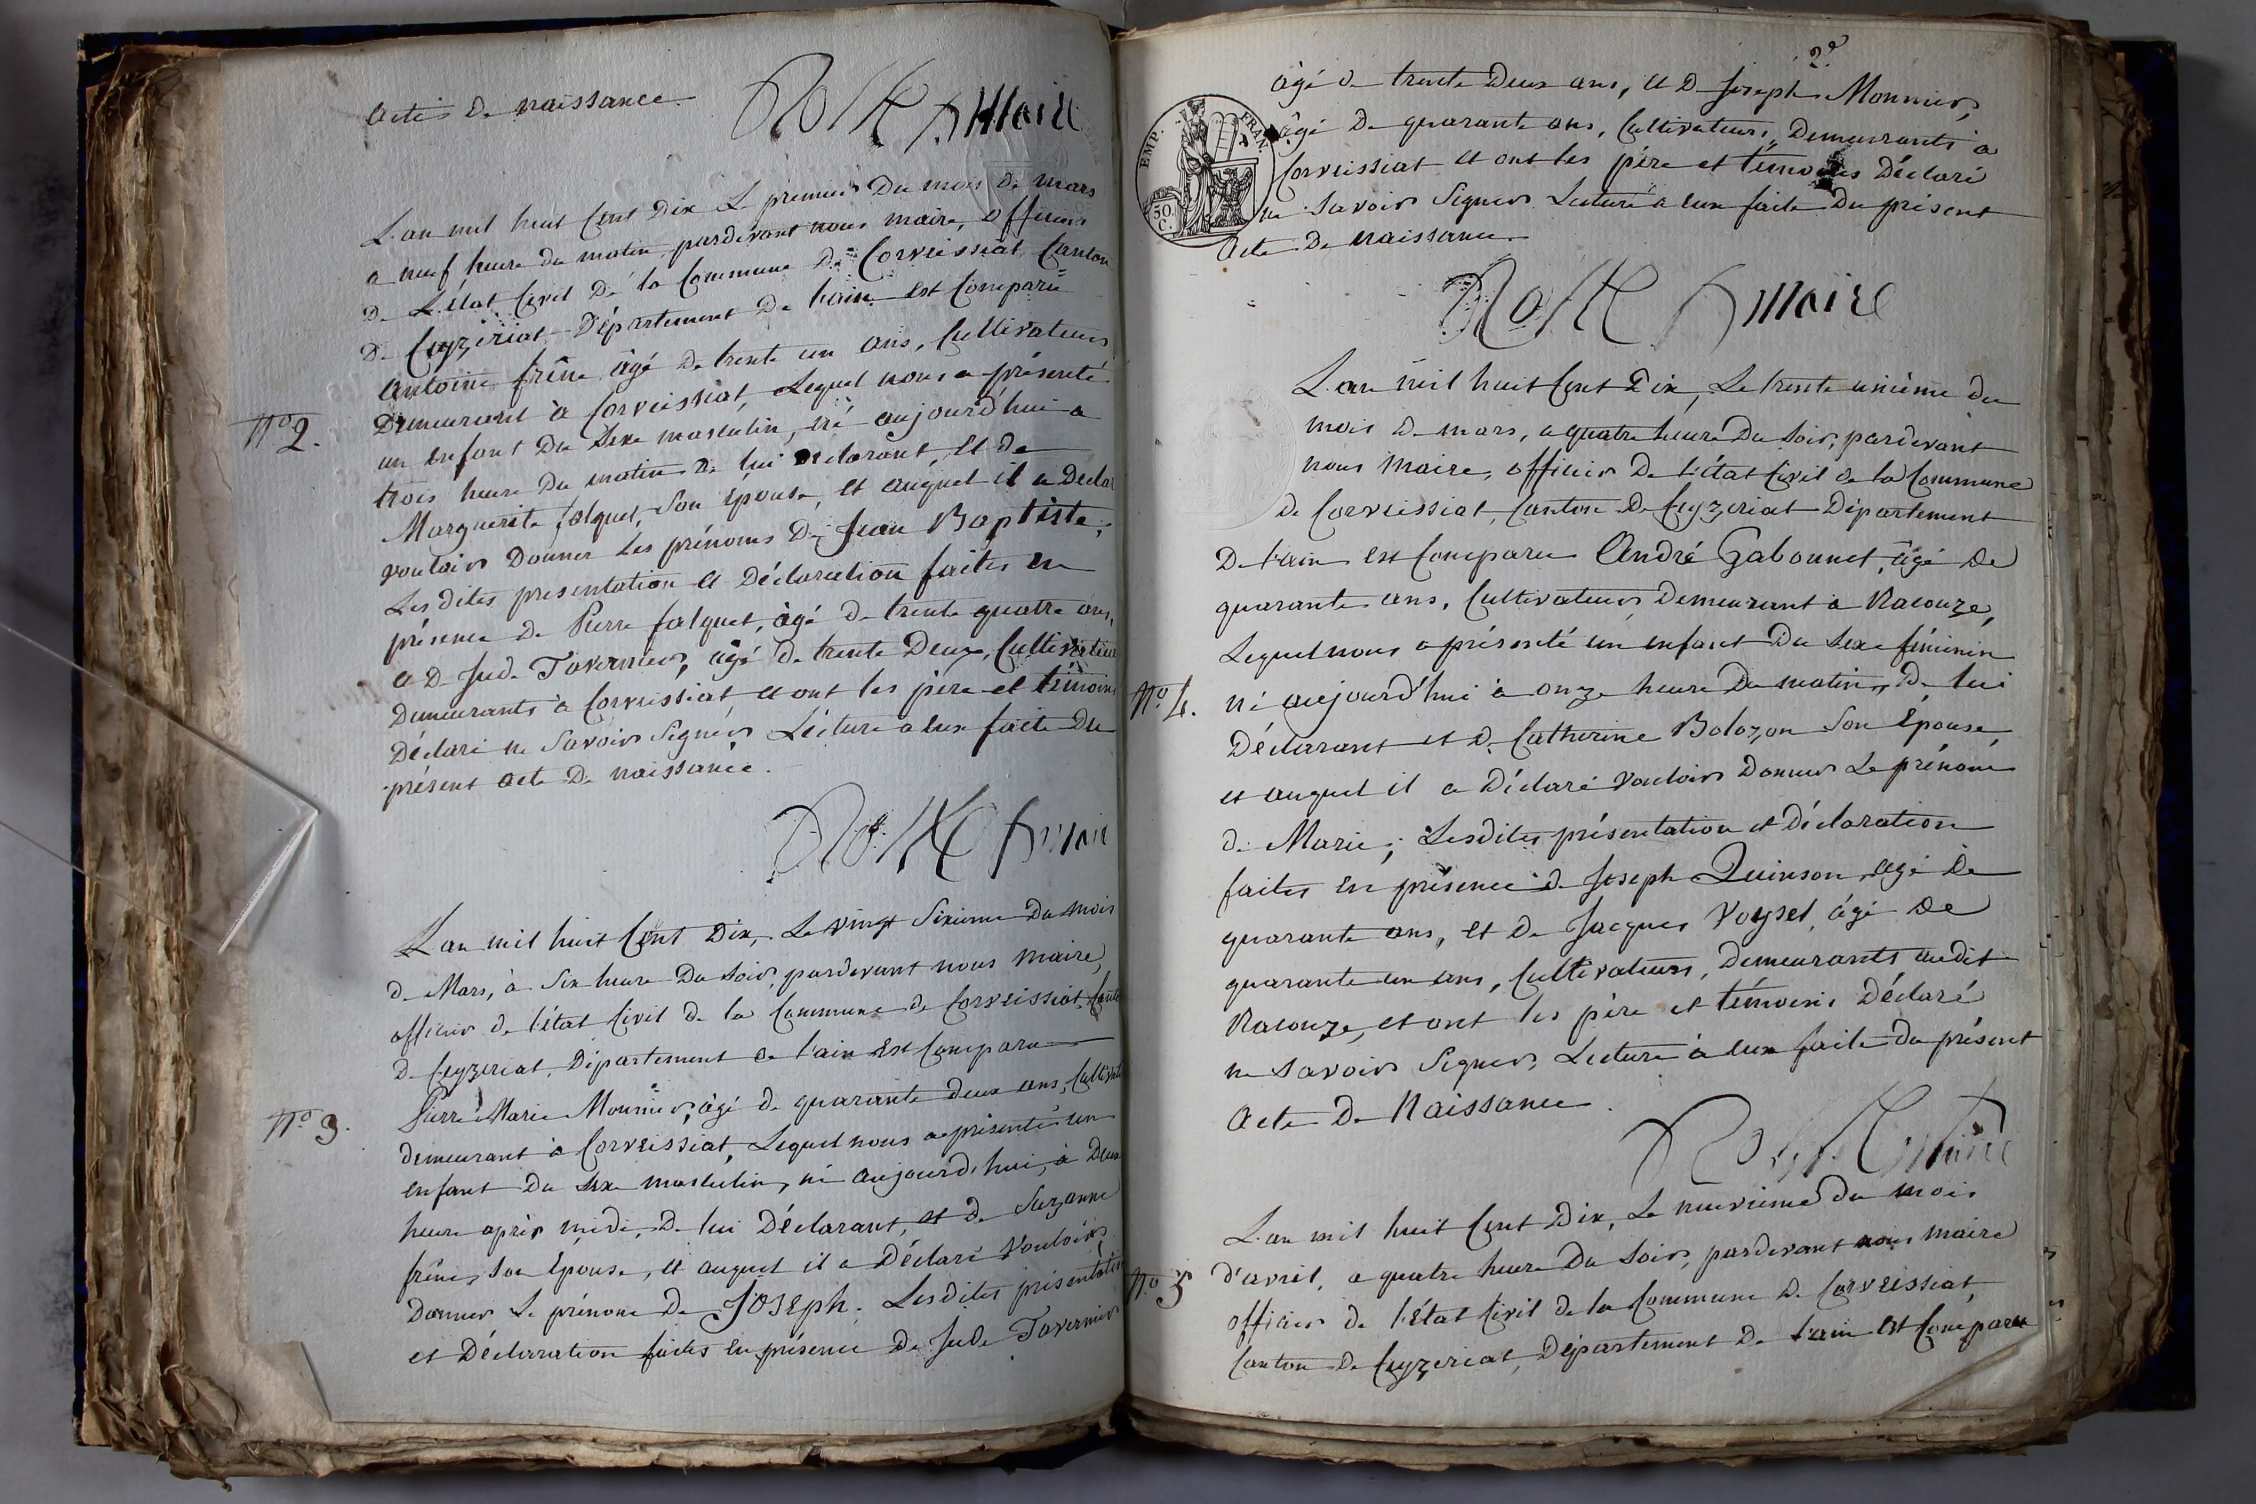 Actes De naissance.
Maire
L'an mil huit Cent Dix Le premier Du mois De mars
a neuf heure du matin, pardevant nous maire, officier
De L'état Civil De la Commune De Corveissiat, Canton
De Ceyzeriat Département De l'ain est Comparu
Antoine frêne âgé De trente un ans, Cultivateur
Demeurant à Corveissiat, Lequel nous a présenté
No 2.
un enfant Du Sexe masculin, né aujourd'hui a
trois heure Du matin De lui Déclarant, et de
Marguerite falquet, Son Épouse, et auquel il a Declaré
vouloir Donner les prénoms De Jean Baptiste;
Les dites presentation et Déclaration faites en
présence De Pierre falquet, âgé De trente quatre ans,
et De Jude Tavernier, âgé De trente Deux, Cultivateurs
Demeurants à Corveissiat, et ont les père et témoins
Déclaré ne Savoir Signer Lecture a eux faite Du
présent acte De naissance.
Maire
L'an mil huit Cent Dix, Le vingt Sixieme Du mois
De Mars, à Six heure Du Soir, pardevant nous Maire,
officier De l'état Civil De la Commune De Corveissiat, Canton
De Ceyzeriat, Département De l'ain Est Comparu
No 3.
Pierre Marie Monnier, âgé De quarante Deux ans, Cultivateur
Demeurant à Corveissiat, Lequel nous a présenté un
Enfant Du Sexe masculin, né aujourd'hui, à Deux
heure après midi, De lui Déclarant, et De Suzanne
frêne, Son Epouse, et auquel il a Déclaré Vouloir
Donner Le prénom De Joseph. Lesdites présentation
et Déclaration faites En présence De Jude Tavernier
2e
âgé De trente Deux ans, et De Joseph Monnier,
âgé De quarante ans, Cultivateurs, Demeurants à
Corveissiat et ont les père et témoins Déclaré
ne Savoir Signer Lecture à eux faite Du présent
Acte De naissance.
EMP. FRAN.
50 C.
Maire
L'an mil huit Cent Dix, Le trente unième du
mois De mars, a quatre heure Du Soir, pardevant
nous Maire, officier De l'état Civil De la Commune
De Corveissiat, Canton De Ceyzeriat Département
De l'ain est Comparu André Gabonnet, âgé De
quarante ans, Cultivateur Demeurant a Racouze,
Lequel nous a présenté un enfant Du Sexe féminin
No 4.
né aujourd'hui à onze heure Du matin, De lui
Déclarant et De Catherine Bolozon Son Épouse,
et auquel il a Déclaré vouloir Donner Le prénom
De Marie; Lesdites présentation et Déclaration
faites En présence De Joseph Quinson, âgé De
quarante ans, et De Jacques Voysel, âgé De
quarante un ans, Cultivateurs, Demeurants audit
Racouze, et ont les père et témoins Déclaré
ne Savoir Signer, Lecture à eux faite Du présent
Acte De Naissance.
Maire
L'an mil huit Cent Dix, Le neuvième Du mois
No 5
d'avril, a quatre heure Du Soir, pardevant nous maire
officier De l'état Civil De la Commune De Corveissiat,
Canton De Ceyzeriat, Département De l'ain Est Comparu